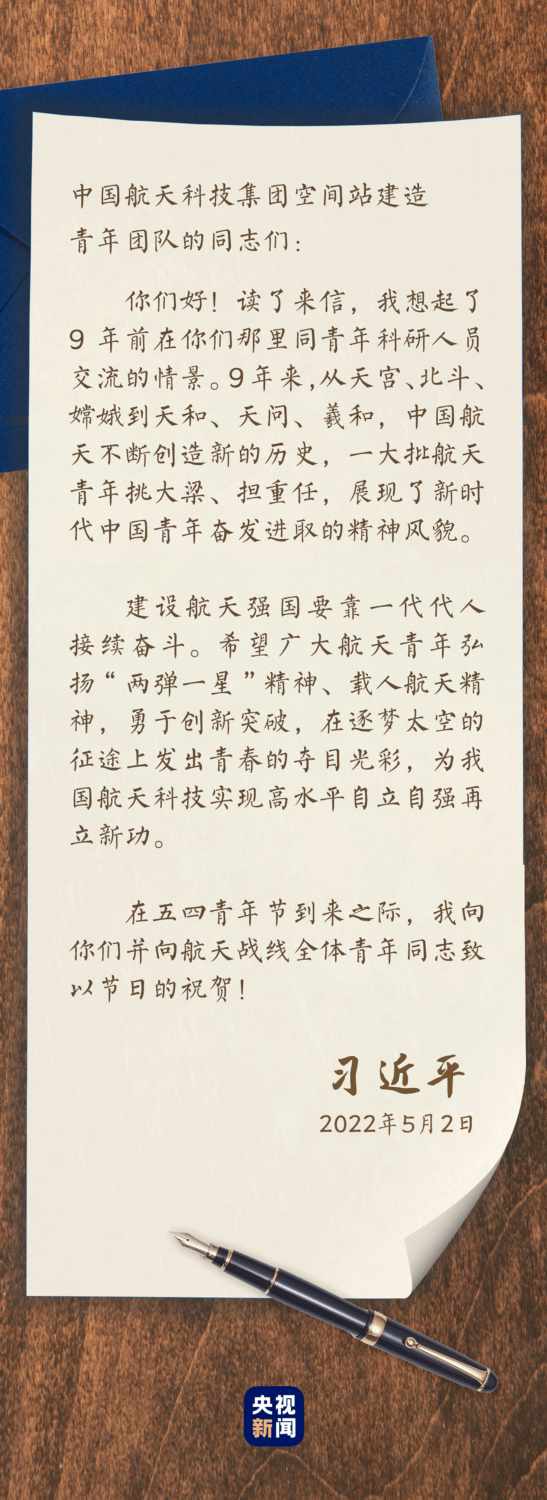 中国航天科技集团空间站建造
青年团队的同志们：
你们好！读了来信，我想起了
9 年前在你们那里同青年科研人员
交流的情景。9年来，从天宫、北斗、
嫦娥到天和、天问、羲和，中国航
天不断创造新的历史，一大批航天
青年挑大梁、担重任，展现了新时
代中国青年奋发进取的精神风貌。
建设航天强国要靠一代代人
接续奋斗。希望广大航天青年弘
扬“两弹一星”精神、载人航天精
神，勇于创新突破，在逐梦太空的
征途上发出青春的夺目光彩，为我
国航天科技实现高水平自立自强再
立新功。
在五四青年节到来之际，我向
你们并向航天战线全体青年同志致
以节日的祝贺！
习近平
2022年5月2日
央视
新闻